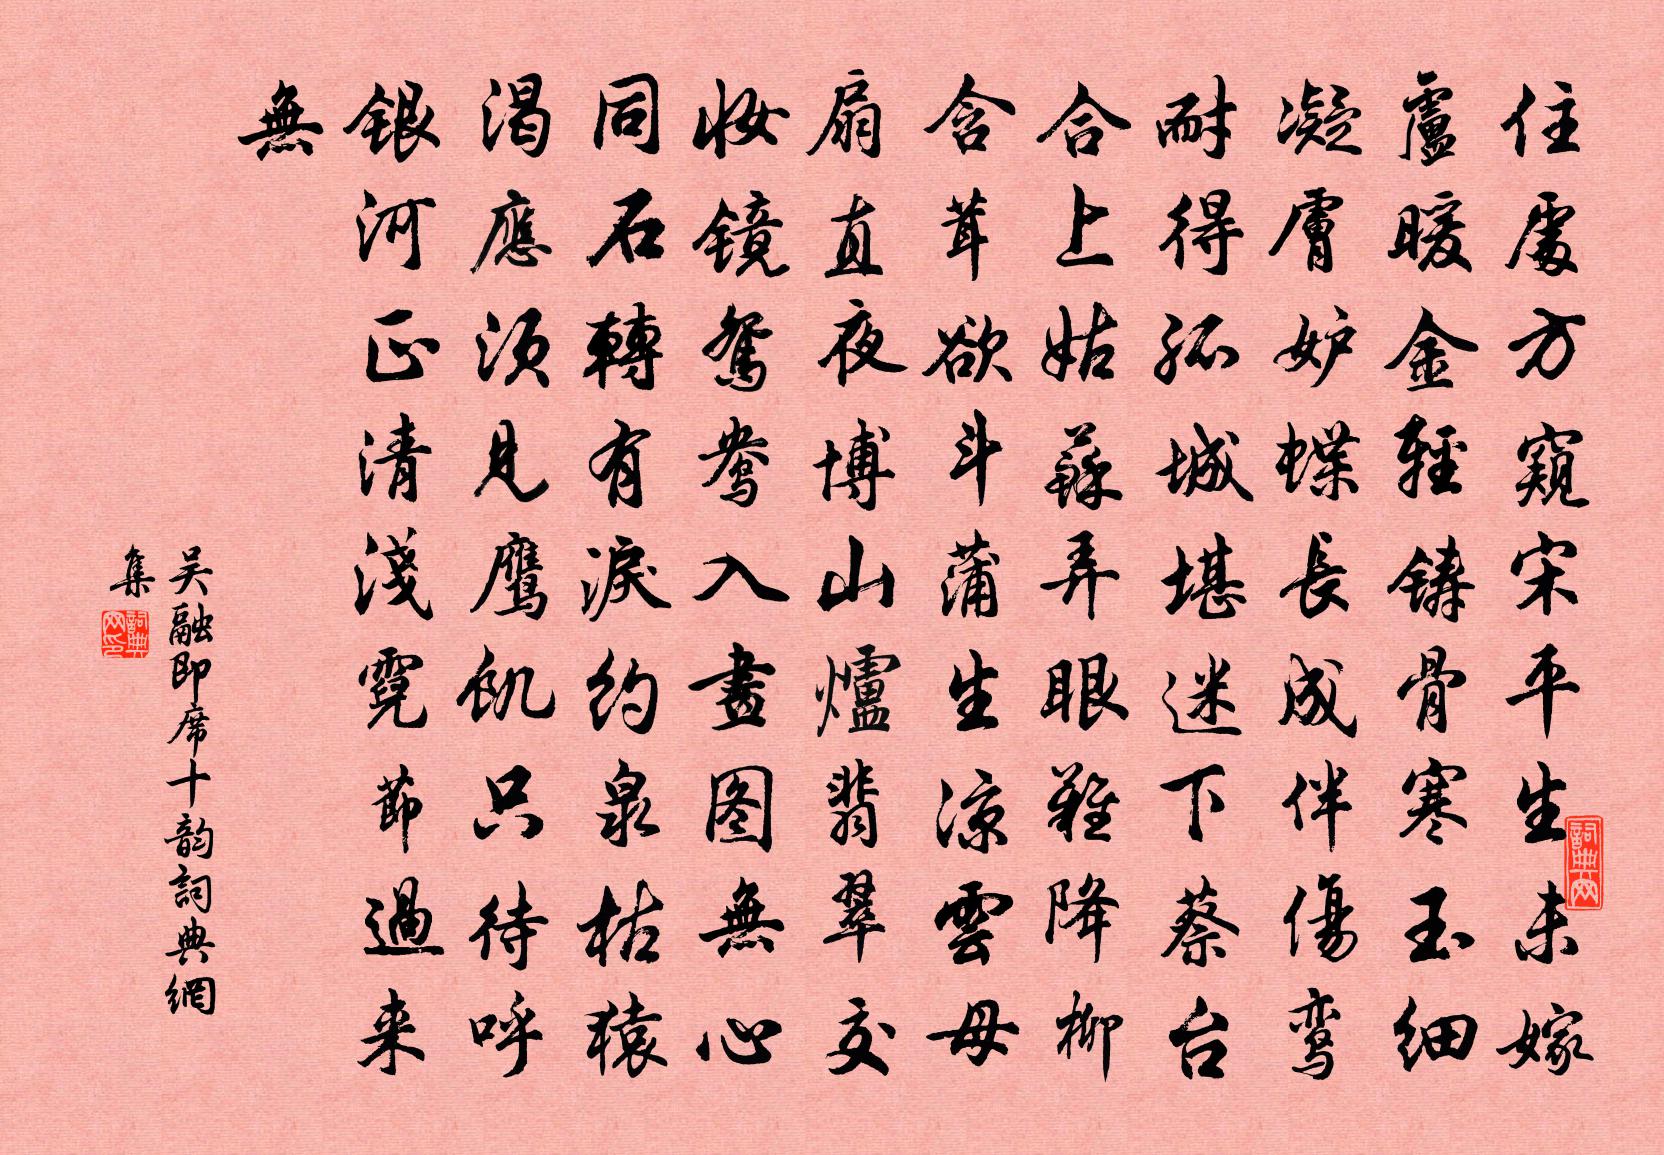 住處方窺宋平生未嫁
盧暖金輕鑄骨寒玉细
凝膚妒蝶長成伴傷鸾
耐得孤城堪迷下蔡台
合上姑蘇弄眼難降柳
含茸欲斗蒲生涼雲母
扇直夜博山爐翡翠交
妝镜鴛鴦入畫图無心
同石轉有淚約泉枯猿
渴應須見鹰飢只待呼
银河正清淺霓節過来
無
吴融即席十韵詞典網
集
詞典网印
詞典网